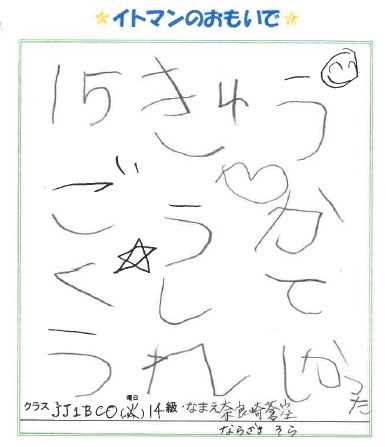 イトマンのおもいで
15きゅう
ごうか
くして
うれしかった
クラス JJ1BCO(水)曜日 14級・なまえ 奈良崎蒼空
ならざき そら